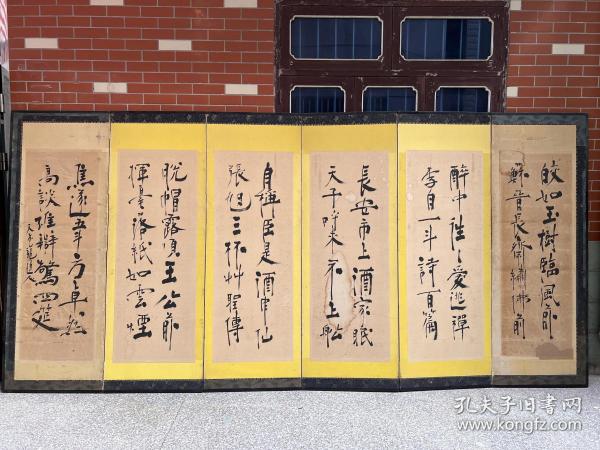 皎如玉樹臨風前
蘇晉長齋繡佛前
醉中往々愛逃禪
李白一斗詩百篇
長安市上酒家眠
天子呼来不上船
自稱臣是酒中仙
張旭三杯草聖傳
脱帽露頂王公前
揮毫落紙如雲煙
焦遂五斗方卓然
高談雄辯驚四筵
孔夫子旧书网
www.kongfz.com